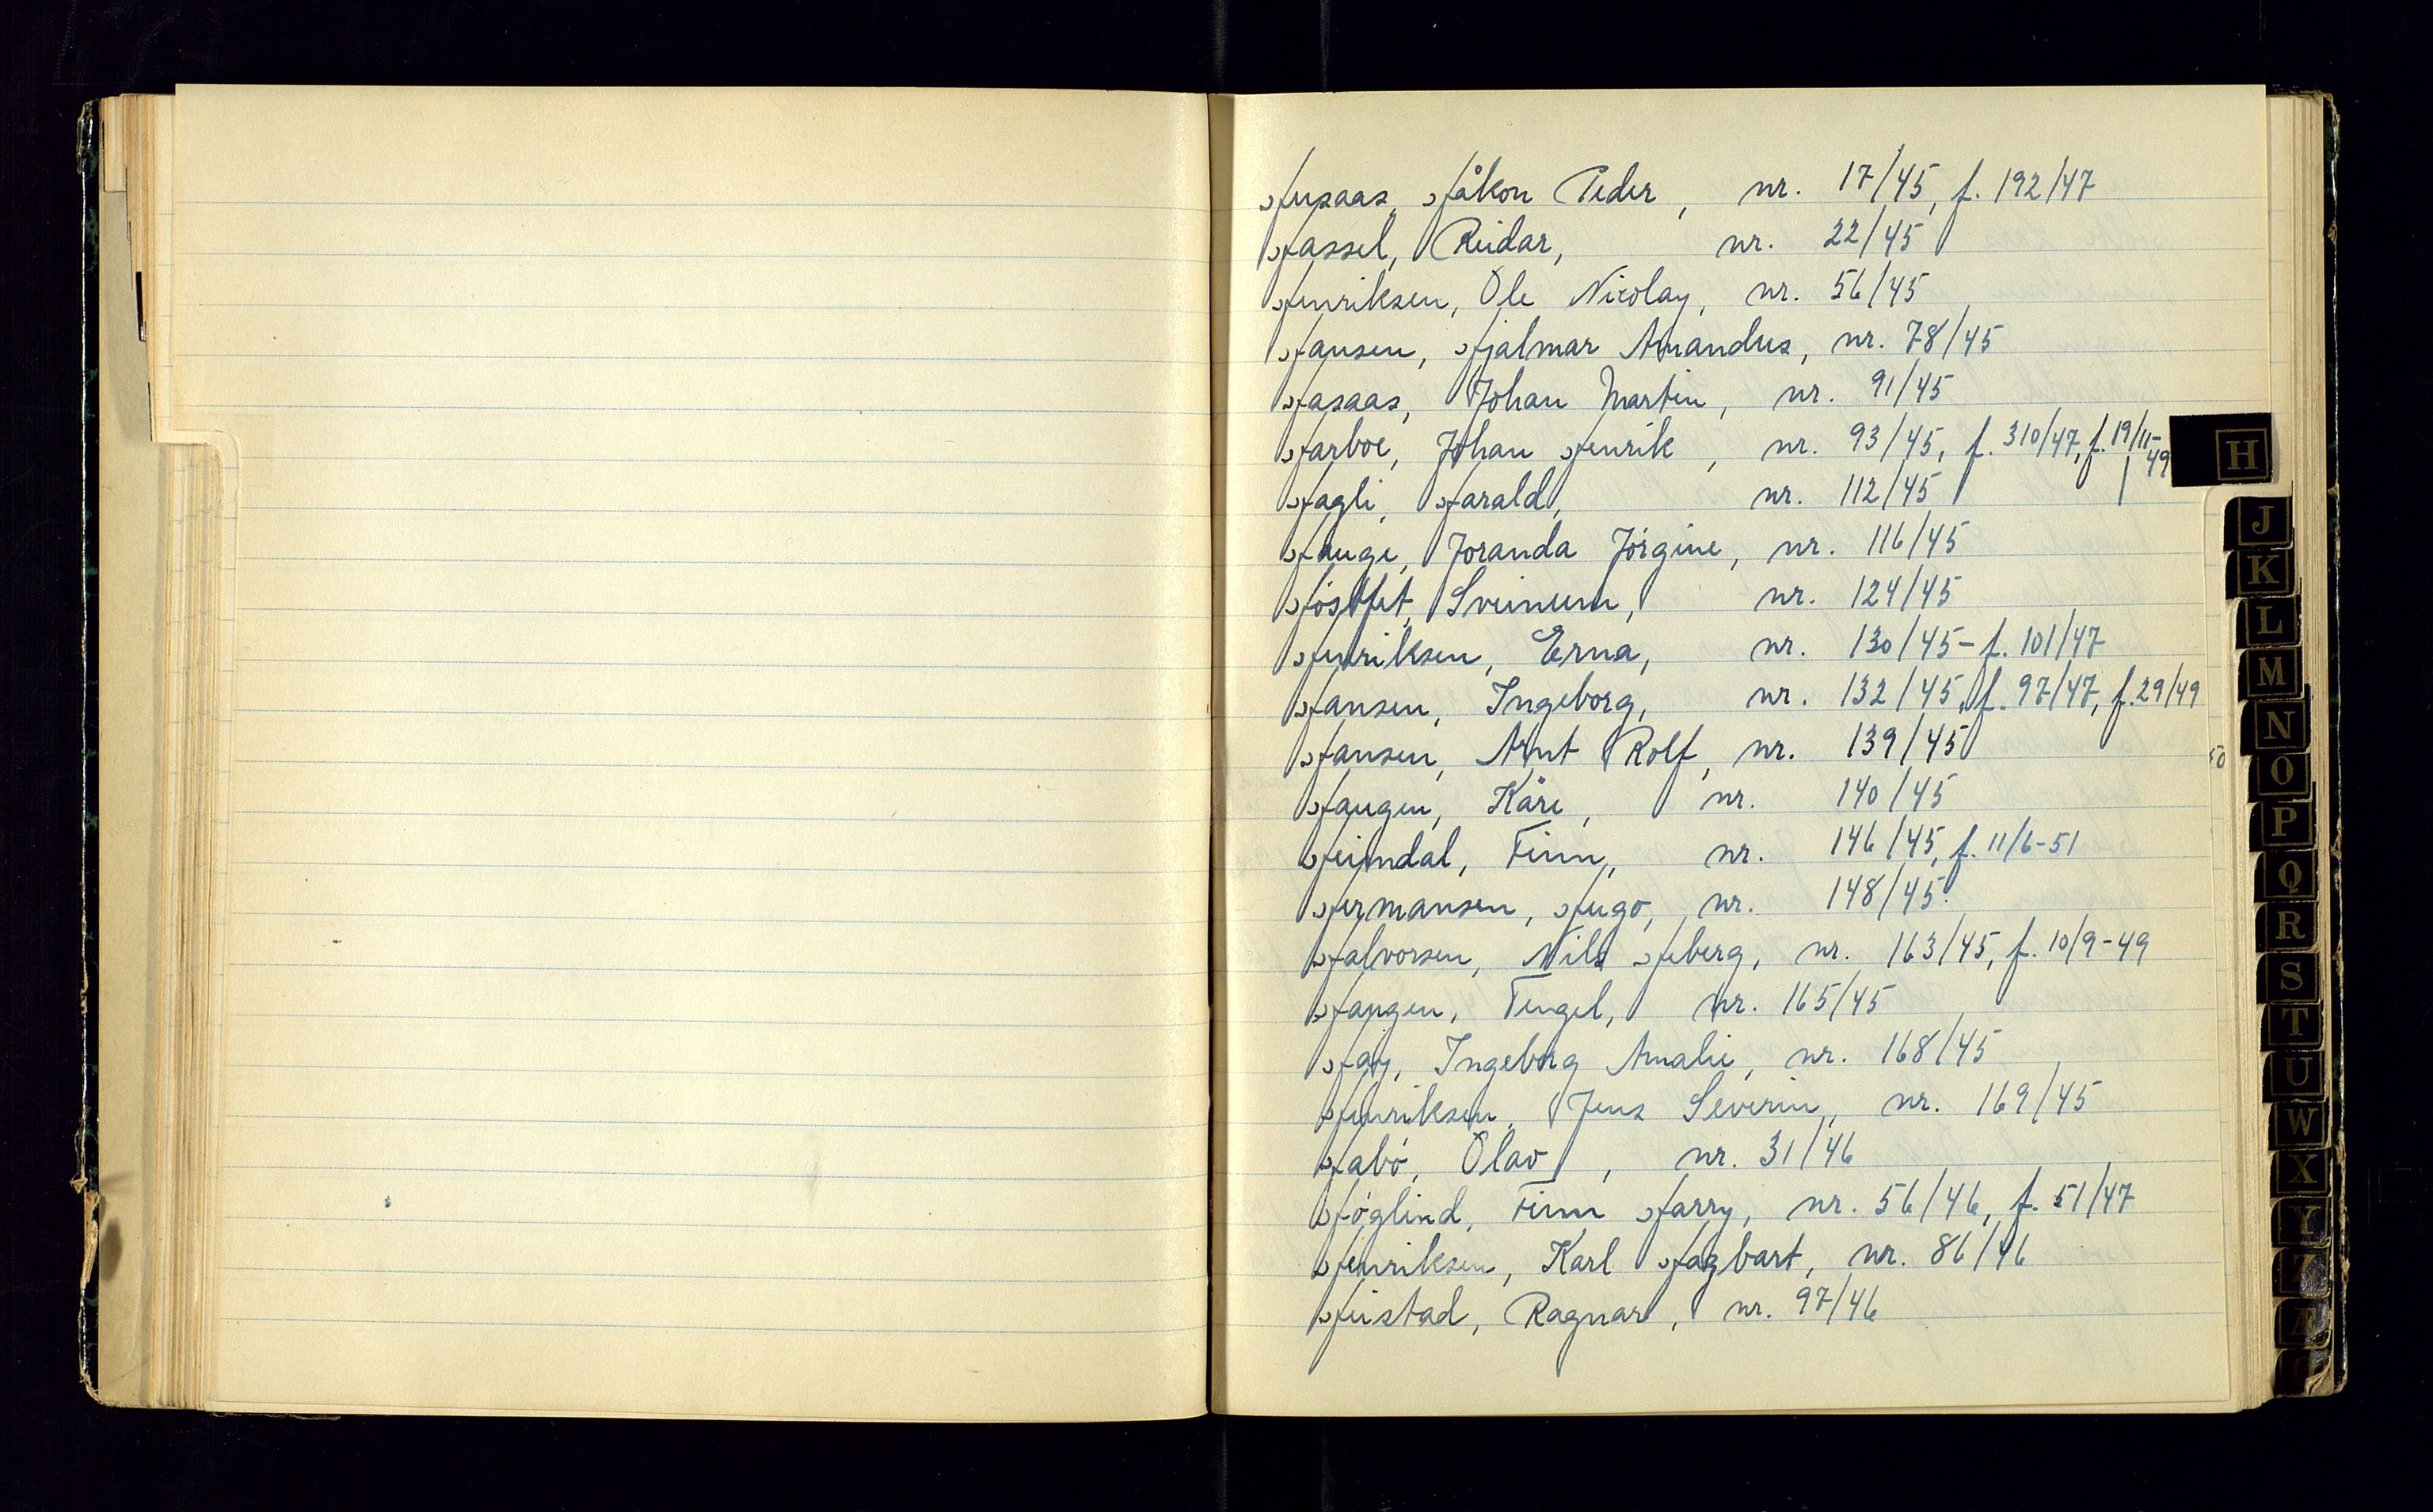 Husaas, Håkon Peder, nr. 17/45, f. 192/47
Hassel, Reidar, nr. 22/45
Henriksen, Ole Nicolay, nr. 56/45
Hansen, Hjalmar Amandus, nr. 78/45
Hasaas, Johan Martin, nr. 91/45
Harboe, Johan Henrik, nr. 93/45, f. 310/47, f. 19/11-49
Hagli, Harald, nr. 112/45
Hauge, Joranda Jörgine, nr. 116/45
Svinum, nr. 124/45
Henriksen, Erna, nr. 130/45 - f. 101/47
Hansen, Ingeborg, nr. 132/45, f. 97/47, f. 29/49
Hansen, Arnt Rolf, nr. 139/45
Haugen, Kåre, nr. 140/45
Heimdal, Finn, nr. 146/45, f. 11/6-51
Hermansen, Hugo, nr. 148/45.
Halvorsen, Nils Heberg, nr. 163/45, f. 10/9-49
Haugen, Tengel, nr. 165/45
Høy, Ingeborg Amalie, nr. 168/45
Henriksen, Jens Severin, nr. 169/45
Habö, Olav, nr. 31/46
Höglind, Finn Harry, nr. 56/46, f. 51/47
Henriksen, Karl Hagbart, nr. 86/46
Heistad, Ragnar, nr. 97/46
50
H
J
K
L
M
N
O
P
Q
R
S
T
U
W
X
Y
Z
Æ